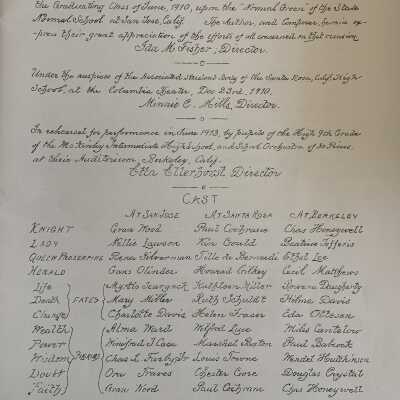 the Graduating Class of June, 1910, upon the "Normal Green" of the State
Normal School at San Jose, Calif. The Author and Composer herein ex-
press their great appreciation of the efforts of all concerned in that rendition.
Ida M Fisher, Director.
Under the auspices of the Associated Students Body of the Santa Rosa, Calif. High
School, at the Columbia Theater, Dec 23rd, 1910.
Minnie C. Mills, Director.
In rehearsal for performance in June 1913, by pupils of the High 9th Grade
of the McKinley Intermediate High School, and School Orchestra of 30 Pieces
at their Auditorium, Berkeley, Calif.
Etta Ellerhorst Director
CAST
AT SAN JOSE AT SANTA ROSA AT BERKELEY
KNIGHT Grau Wood Paul Cochrane Chas Honeywell
LADY Millie Lawson Kin Gould Beatrice Jefferis
QUEEN PROSERPINE Rena Silverman Tille de Bernardi Ethel Lee
HERALD Gans Olinder Howard Gilkey Cecil Matthews
Life Myrtis Kathleen Miller Daugherty
Death FATES Mary Miller Ruth Schuldt Hilma Davis
Change Charlotte Davis Helen Fraser Eda Otteson
Wealth Alma Ward Wilfred Lyce Miles Cantelow
Power Winifred J Case Marshal Paxton Paul Babcock
Wisdom Chas L Jr Louis Trome Wendel Houtchinson
Doubt Orra Traves Chester Core Douglas Crystal
Faith Grau Wood Paul Cochrane Chas Honeywell